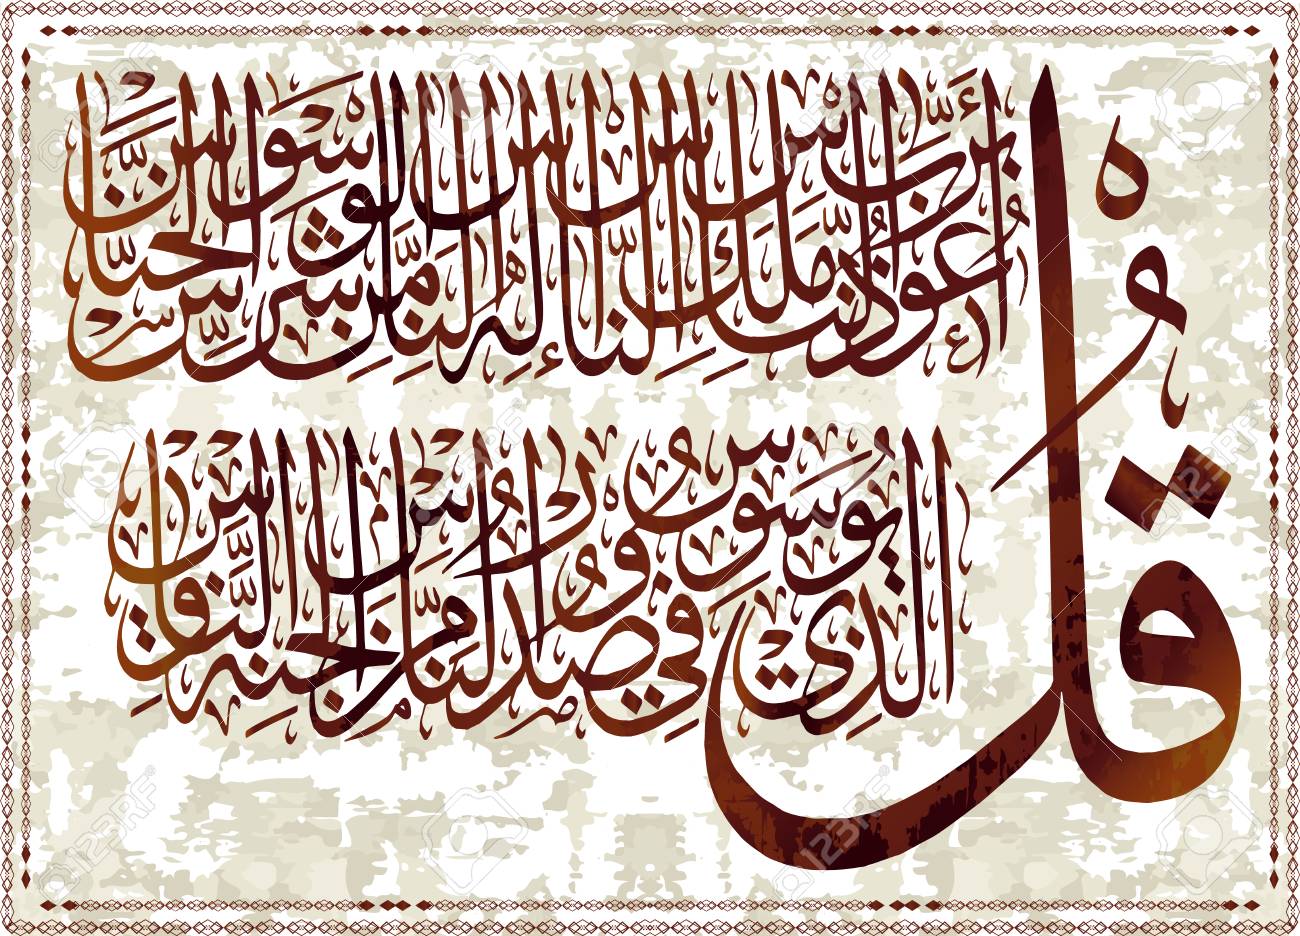 قل أعوذ برب الناس ملك الناس إله الناس من شر الوسواس الخناس
الذي يوسوس في صدور الناس من الجنة والناس
123RF